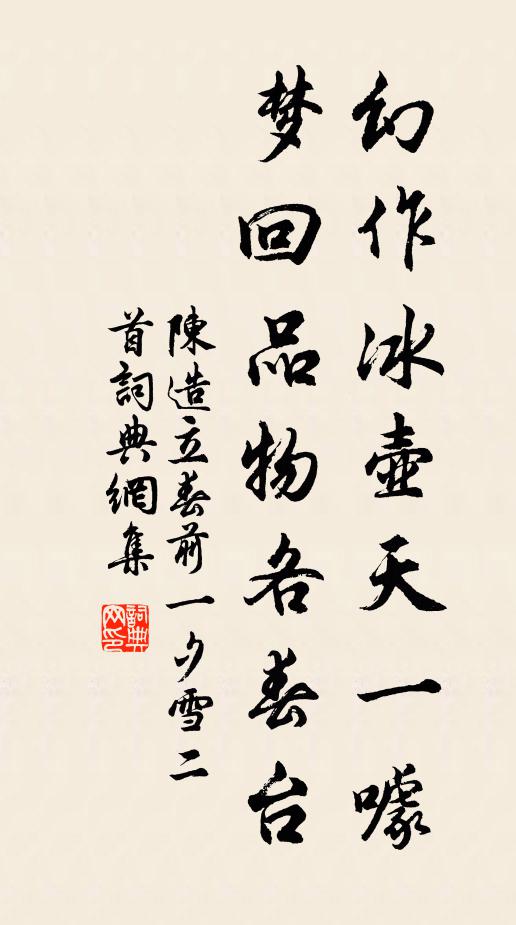 幻作冰壺天一噱
梦回品物各春台
陳造立春前一夕雪二
首詞典網集
詞典网印